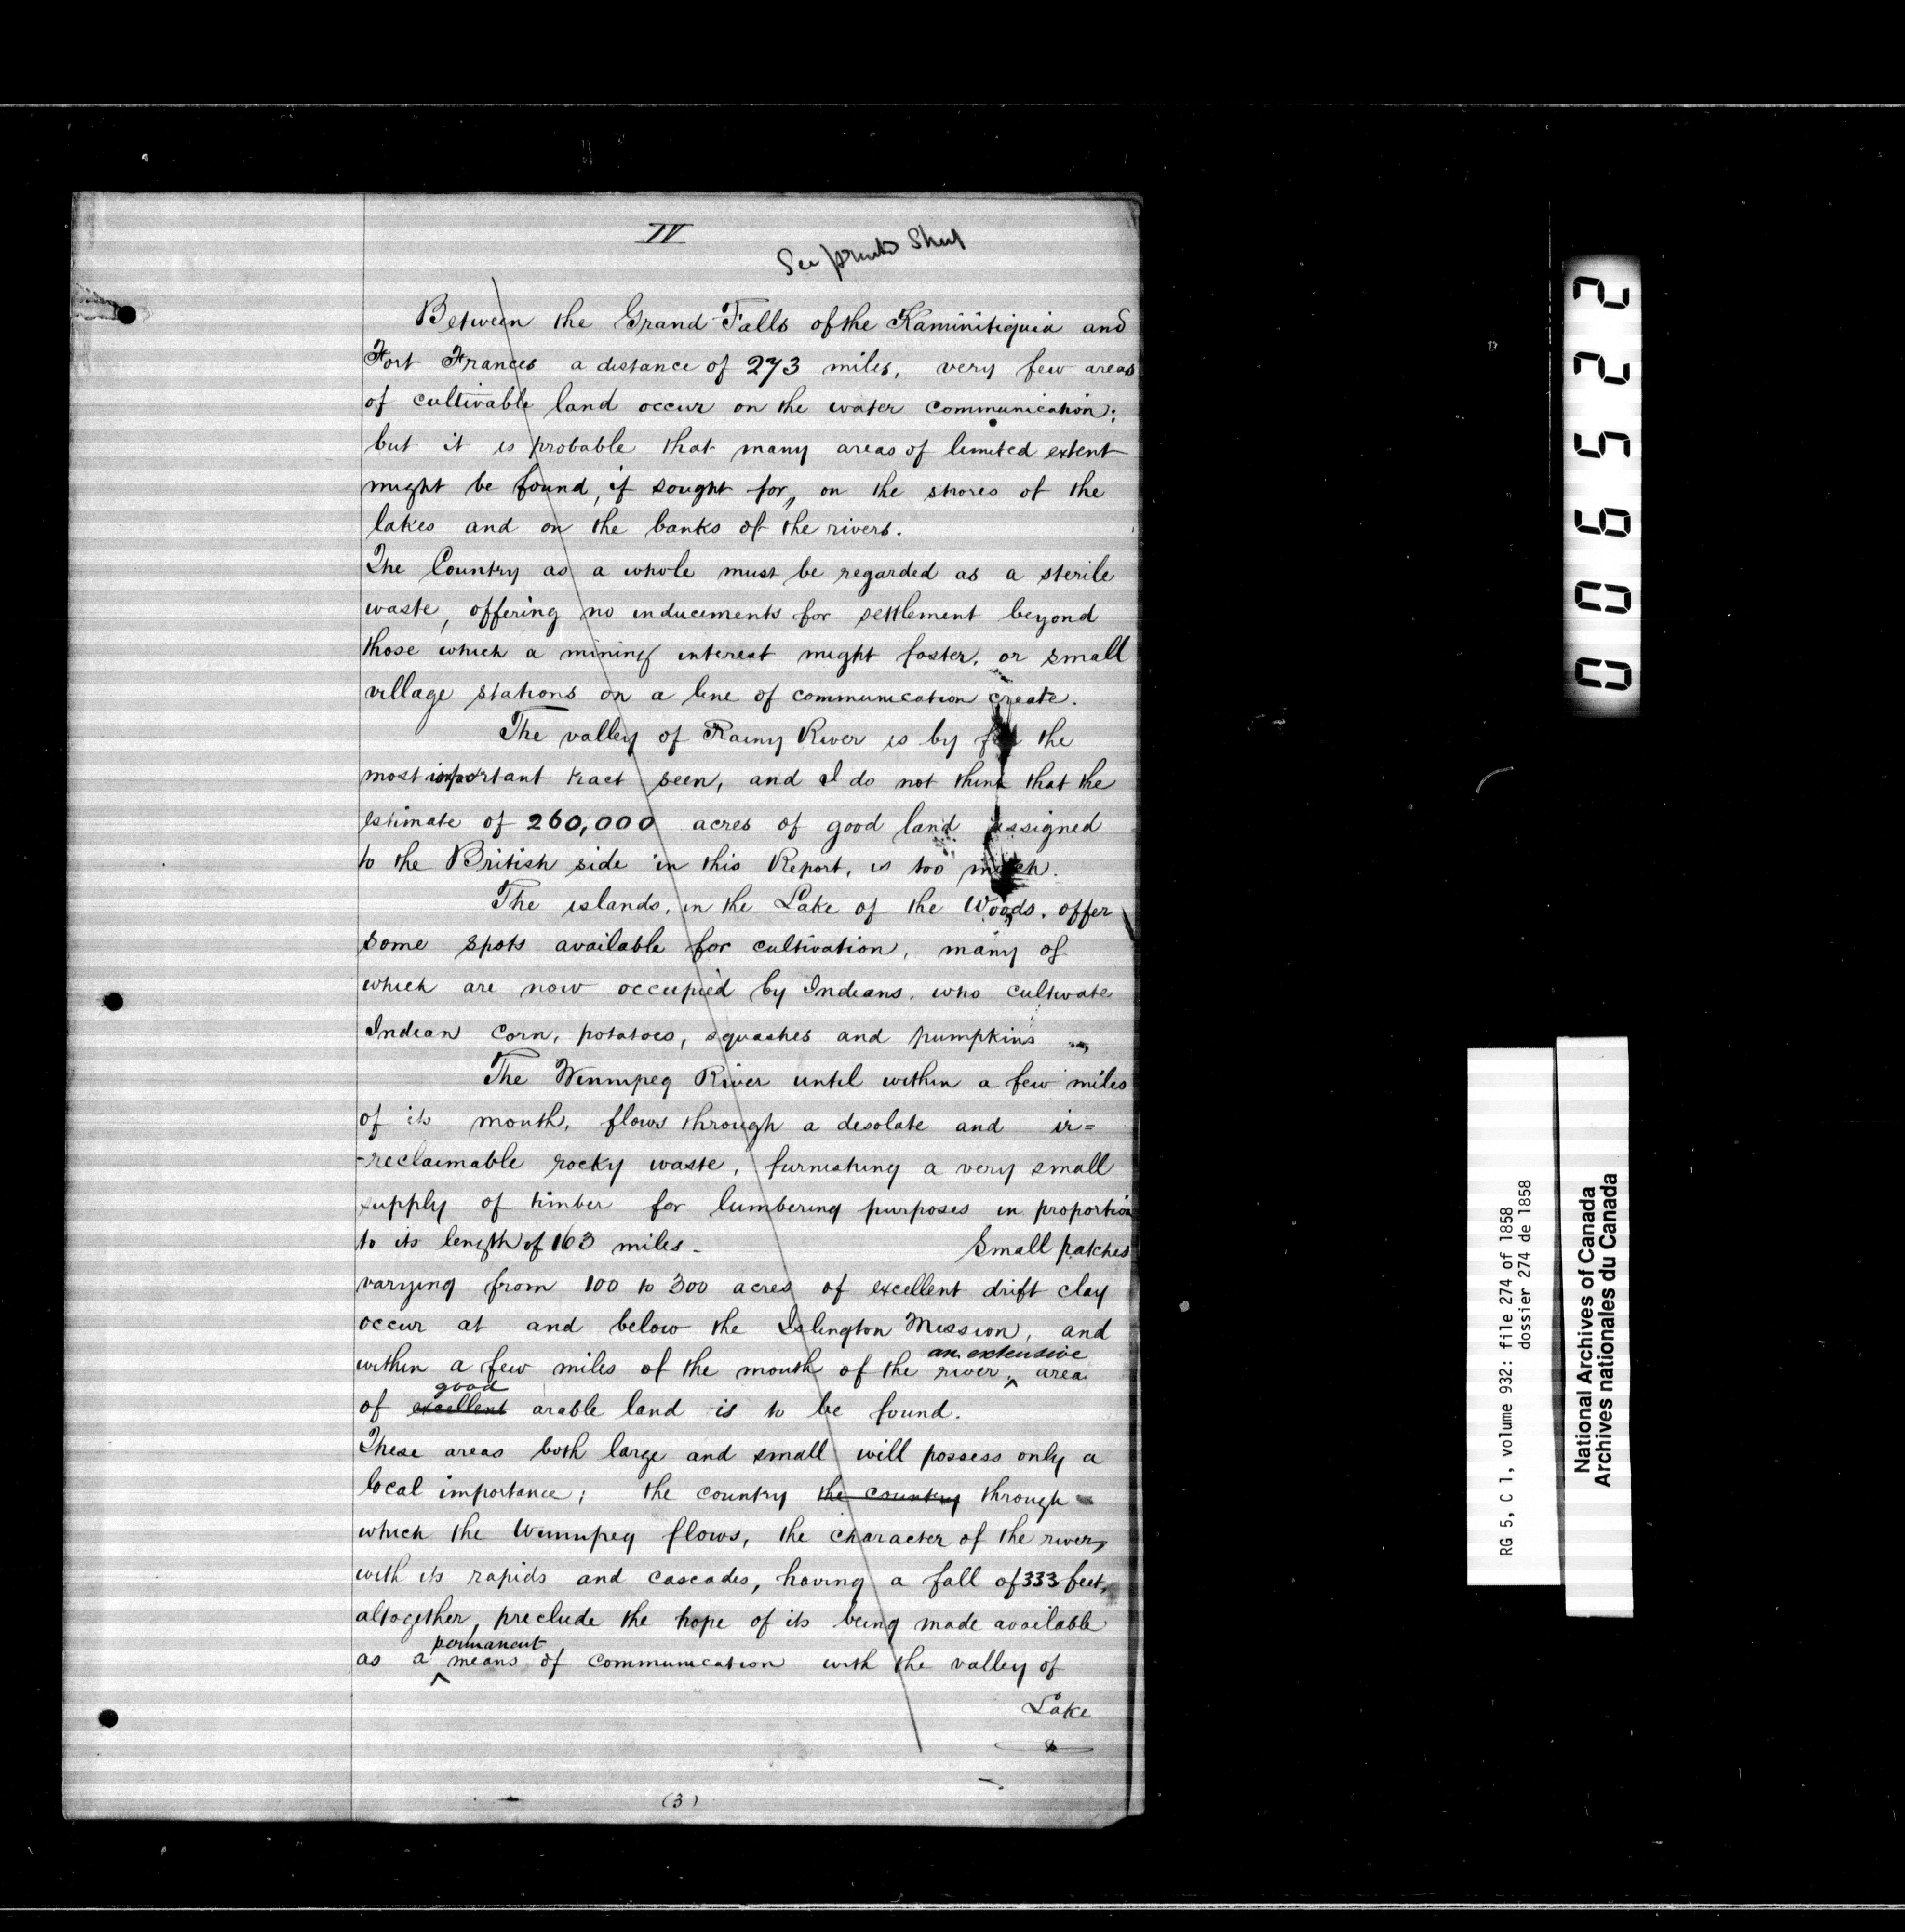 IV
See Sheet
Between the Grand Falls of the Kaministiquia and
Fort Frances a distance of 273 miles, very few areas
of cultivable land occur on the water communication;
but it is probable that many areas of limited extent
might be found, if sought for, on the shores of the
lakes and on the banks of the rivers.
The Country as a whole must be regarded as a sterile
waste, offering no inducements for settlement beyond
those which a mining interest might foster, or small
village stations on a line of communication create.
The valley of Rainy River is by far the
most important tract seen, and I do not think that the
estimate of 260,000 acres of good land assigned
to the British side in this Report, is too much.
The islands, in the Lake of the Woods, offer
some spots available for cultivation, many of
which are now occupied by Indians, who cultivate
Indian corn, potatoes, squashes and pumpkins
The Winnipeg River until within a few miles
of its mouth, flows through a desolate and ir=
-reclaimable rocky waste, furnishing a very small
supply of timber for lumbering purposes in proportion
to its length of 163 miles. Small patches
varying from 100 to 300 acres of excellent drift clay
occur at and below the Islington Mission, and
an extensive
within a few miles of the mouth of the river, ^ area
good
of excellent arable land is to be found.
These areas both large and small will possess only a
local importance; the country the country through
which the Winnipeg flows, the character of the river,
with its rapids and cascades, having a fall of 333 feet,
altogether, preclude the hope of its being made available
permanent
as a ^ means of communication with the valley of
Lake
(3)
006522
RG 5, C 1, volume 932: file 274 of 1858
dossier 274 de 1858
National Archives of Canada
Archives nationales du Canada